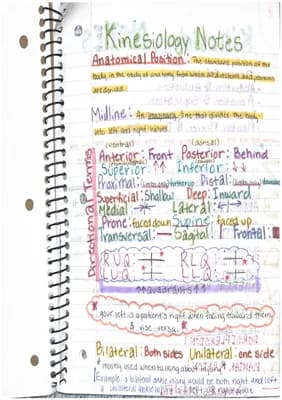 Kinesiology Notes
Anatomical Position: The standard position of the
body in the study of anatomy from which all directions and positions
are derived.
Midline: An imaginary line that divides the body
into left and right halves
(ventral) (dorsal)
Directional Terms
Anterior: Front Posterior: Behind
Superior: ↑↑ Inferior: ↓↓
Proximal: Distal:
Superficial: Shallow Deep: Inward
Medial → Lateral
Prone: faced down Supine: faced up
Transversal: — Sagital: Frontal:
RUQ RLQ
LUQ LLQ
↑↑quadrants↑↑
your left is a patient's right when facing toward them
& vise versa.
Bilateral: Both sides Unilateral: one side
mostly used when talking about injury
Example: a bilateral ankle injury would be both right and left.
a unilateral ankle